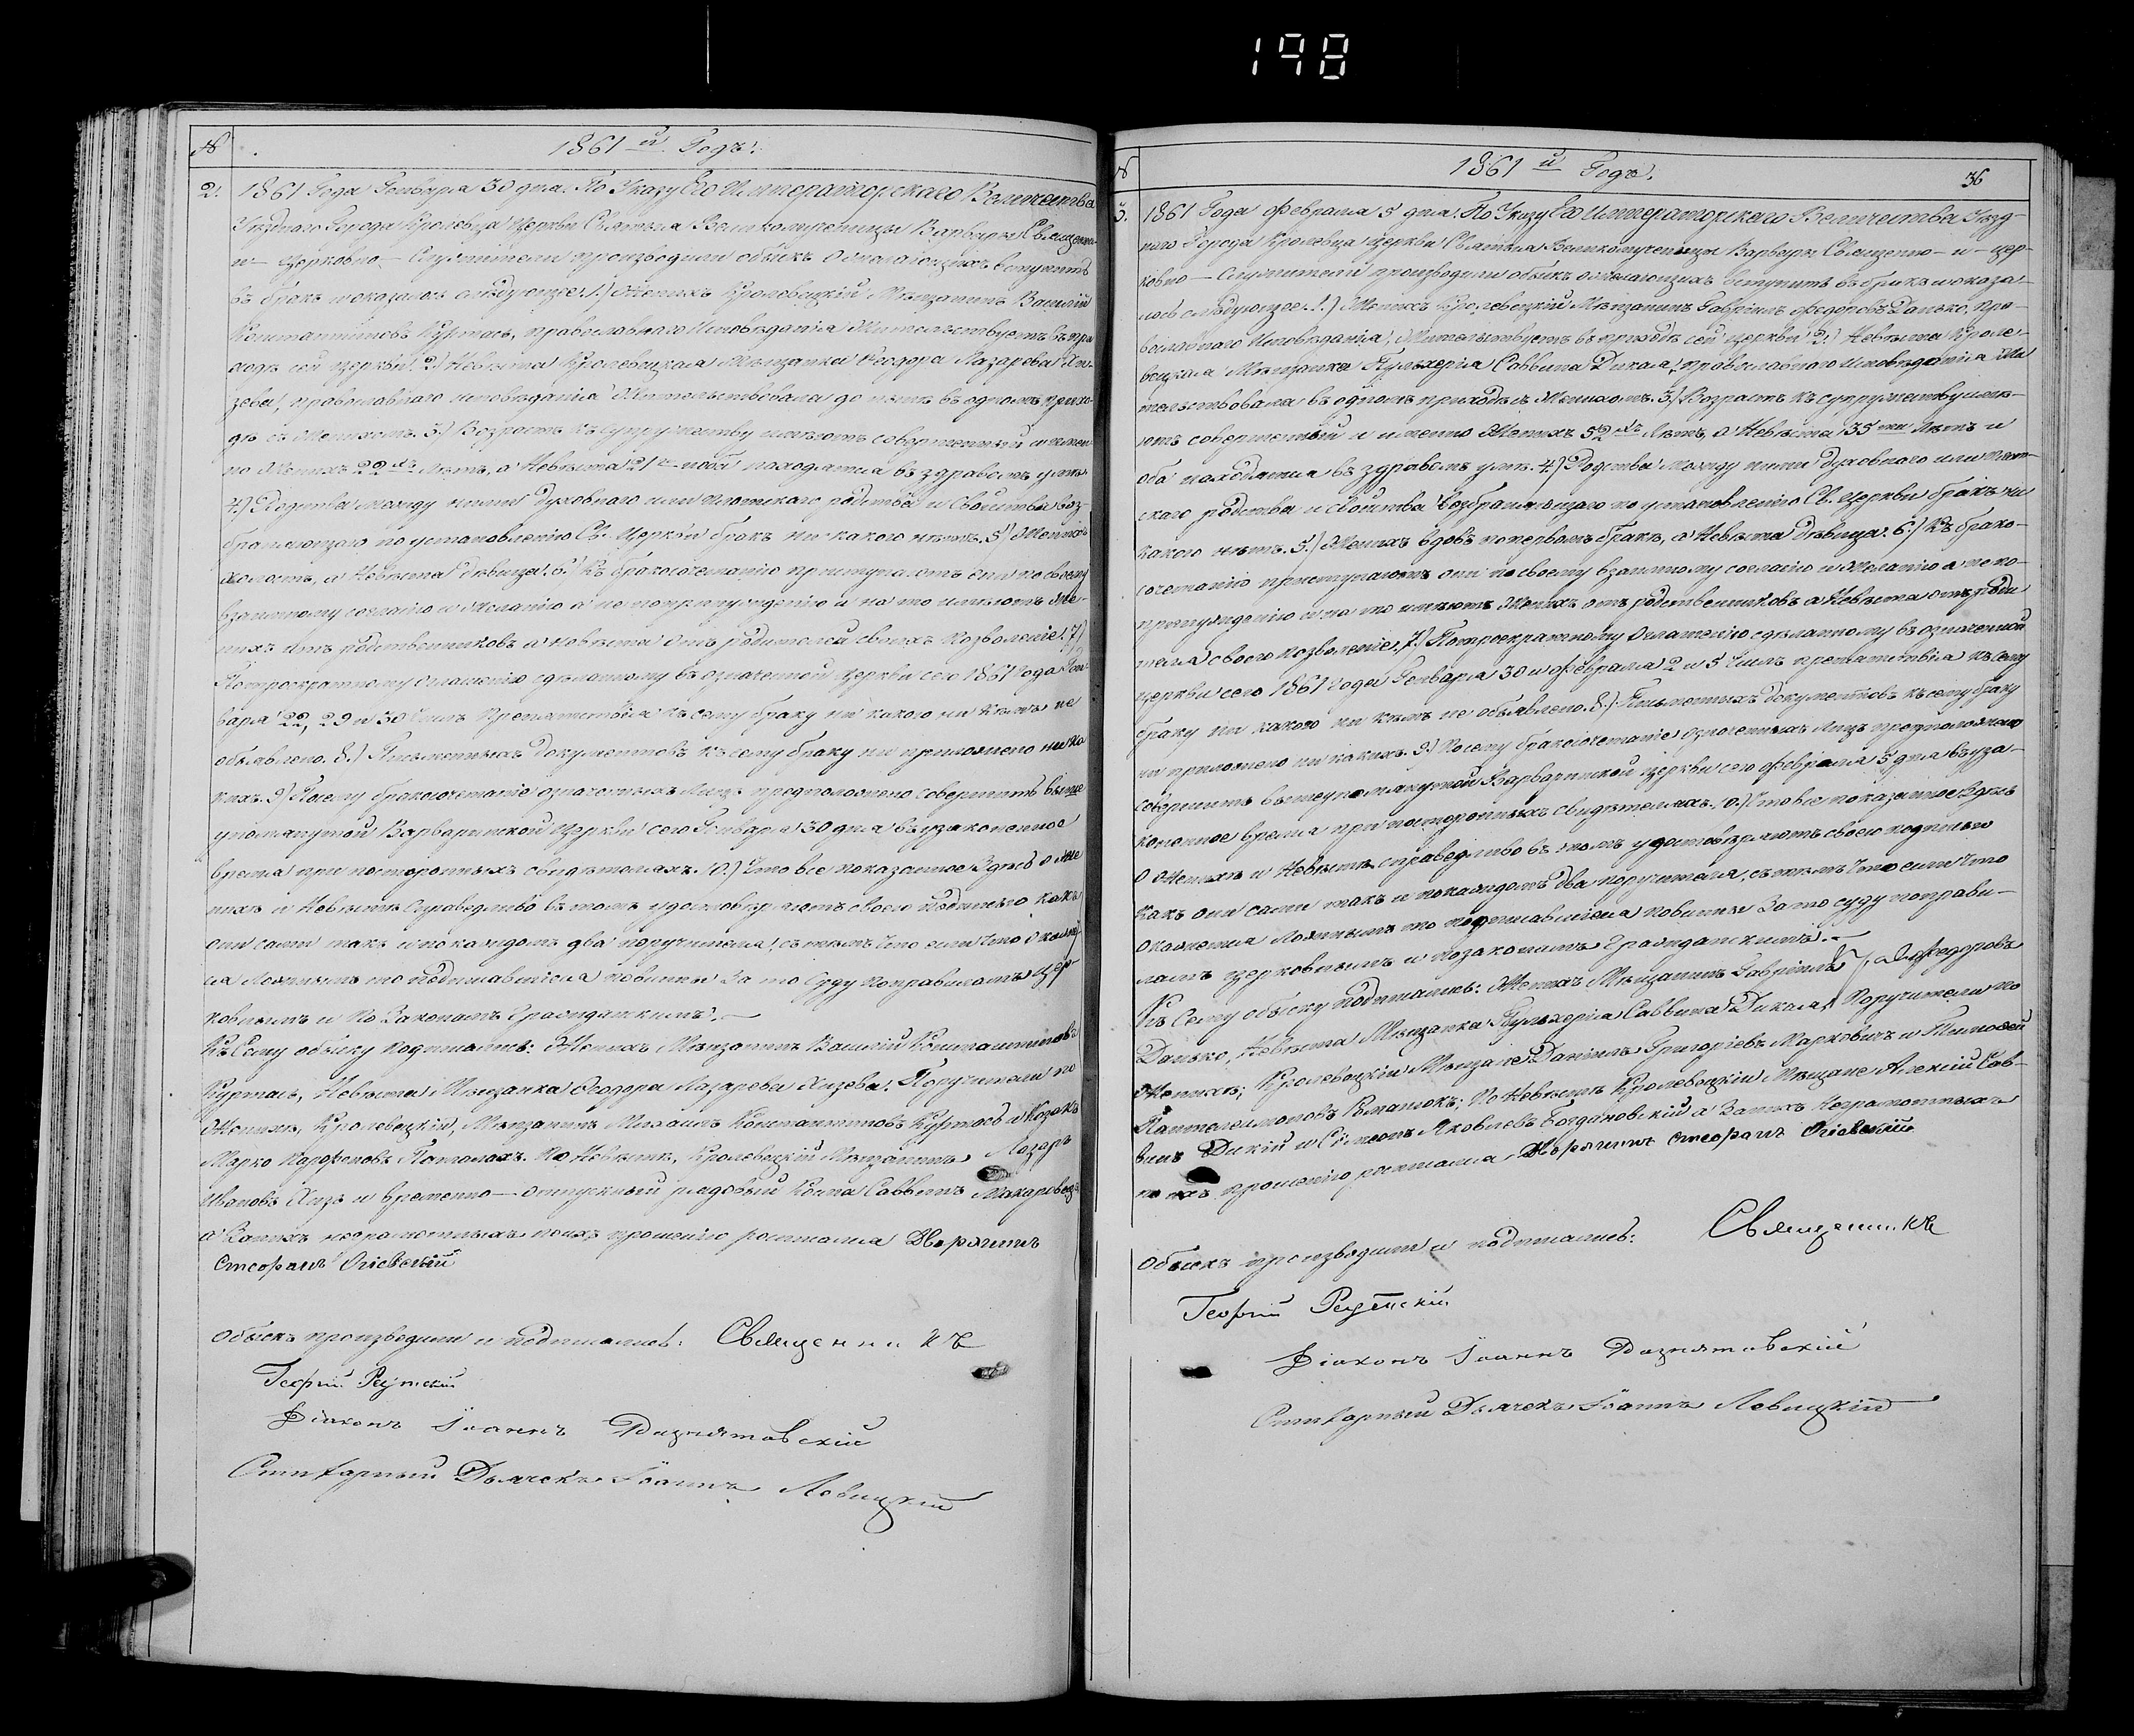 198
№ 1861й Годъ.
2. 1861 Года Генваря 30 дня. По Указу Его Императорскаго Величества
Уѣзднаго Города Кролевца Церкви Святыя Великомученицы Варвары Священно
и Церковно-Служители производили обыскъ о желающихъ вступить
въ бракъ и оказалось слѣдующее: 1.) Женихъ Кролевецкій Мѣщанинъ Василій
Константиновъ Куртасъ, православнаго Исповѣданія Жительствуетъ въ при
ходѣ сей церкви. 2.) Невѣста Кролевецкая Мѣщанка Ѳеодора Лазарева Хи
зева, православнаго исповѣданія Жительствовала до нынѣ въ одномъ прихо
дѣ съ Женихомъ. 3.) Возрастъ къ супружеству имѣютъ совершенный и имен
но Женихъ 22хъ Лѣтъ, а Невѣста 21 и оба находятся въ здравомъ умѣ
4.) Родства между ними духовнаго или плотскаго родства и свойства воз
браняющаго по установленію Св. Церкви бракъ ни какого нѣтъ. 5.) Женихъ
холостъ, а Невѣста дѣвица. 6.) Къ бракосочетанію приступаютъ они по своему
взаимному согласію и желанію а не по принужденію и на то имѣютъ Же-
нихъ отъ родственниковъ а невѣста отъ родителей своихъ позволеніе. 7.)
По троекратному оглашенію сдѣланному въ означенной Церкви сего 1861 года Ген
варя 22, 29 и 30 Чиселъ Препятствія къ сему браку ни какого ни кѣмъ не
объявлено. 8.) Письменныхъ документовъ къ сему браку ни приложено ни ка
кихъ. 9.) Посему бракосочетаніе означенныхъ Лицъ предположено совершить выше
упомянутой Варваринской Церкви сего Генваря 30 дня въ узаконенное
время при постороннихъ свидѣтеляхъ. 10.) Что все показанное Здѣсь о Же
нихѣ и Невѣстѣ справедливо въ томъ удостовѣряютъ своею подписью какъ
они сами такъ и по каждомъ два поручителя, съ тѣмъ что если что окажет
ся Ложнымъ то подписавшіеся повинны За то суду по правиламъ цер
ковнымъ и по Законамъ Гражданскимъ.
Къ Сему обыску подписались: Женихъ Мѣщанинъ Василій Константиновъ
Куртасъ, Невѣста Мѣщанка Ѳеодора Лазарева Хизева. Поручители по
Женихѣ, Кролевецкій, Мѣщанинъ Михаилъ Константиновъ Куртасъ и Козакъ
Марко Парѳеновъ. По Невѣстѣ, Кролевецкій Мѣщанинъ Лазарь
Ивановъ Хизъ и временно-отпускный рядовый
а Занихъ неграмотныхъ по ихъ прошенію росписался Дворянинъ
Стефанъ Огіевскій
Обыскъ производили и подписались: Священникъ
Георгій Реутскій
Діаконъ Іоаннъ
Дьячекъ Іоаннъ Левицкій
№ 1861й Годъ. 36
3. 1861 Года Февраля 5 дня. По Указу Его Императорскаго Величества Уѣзд-
наго Города Кролевца Церкви Святыя Великомученицы Варвары Священно-и-Цер-
ковно-Служители производили обыскъ о желающихъ вступить въ бракъ и оказа-
лось слѣдующее: 1.) Женихъ Кролевецкій Мѣщанинъ Гавріилъ Федоровъ Данько, пра-
вославнаго Исповѣданія, Жительствуетъ въ приходѣ сей церкви. 2.) Невѣста Кроле-
вецкая Мѣщанка Пульхерія Саввина Дикая, православнаго исповѣданія Жи
тельствовала въ одномъ приходѣ съ Женихомъ. 3.) Возрастъ къ супружеству имѣ-
ютъ совершенный и именно Женихъ 52хъ Лѣтъ, а Невѣста 35ти Лѣтъ и
оба находятся въ здравомъ умѣ. 4.) Родства между ними духовнаго или плот-
скаго родства и свойства возбраняющаго по установленію Св. Церкви бракъ ни
какого нѣтъ. 5.) Женихъ вдовъ по первомъ бракѣ, а Невѣста дѣвица. 6.) Къ брако-
сочетанію приступаютъ они по своему взаимному согласію и желанію а не по-
принужденію и на то имѣютъ Женихъ отъ родственниковъ а Невѣста отъ роди
теля своего позволеніе. 7.) По троекратному оглашенію сдѣланному въ означенной
церкви сего 1861 Года Генваря 30 и Февраля 2 и 5 Чиселъ препятствія къ сему
браку ни какого ни кѣмъ не объявлено. 8.) Письменныхъ документовъ къ сему браку
ни приложено ни какихъ. 9.) Посему бракосочетаніе означенныхъ Лицъ предположено
совершить въ вышеупомянутой Варваринской церкви сего Февраля 5 дня въ уза-
коненное время при постороннихъ свидѣтеляхъ. 10.) Что все показанное Здѣсь
о Женихѣ и Невѣстѣ справедливо въ томъ удостовѣряютъ своею подписью
какъ они сами такъ и по каждомъ два поручителя, съ тѣмъ что если что
окажется Ложнымъ то подписавшіеся повинны За то суду по прави-
ламъ церковнымъ и по законамъ Гражданскимъ.
Къ Сему обыску подписались: Женихъ Мѣщанинъ Гавріилъ Федоровъ
Данько, Невѣста Мѣщанка Пульхерія Саввина Дикая, Поручители по
Женихѣ; Кролевецкіи Мѣщане Даніилъ Григоріевъ Марковичъ и Тимоѳей
Пантелеимоновъ; По Невѣстѣ Кролевецкіи Мѣщане Алексій Сав-
винъ Дикій и Сѵмеонъ Яковлевъ Богдановскій а Занихъ Неграмотныхъ
по ихъ прошенію росписался Дворянинъ Стефанъ Огіевскій
Обыскъ производили и подписались: Священникъ
Георгій Реутскій
Діаконъ Іоаннъ
Дьячекъ Іоаннъ Левицкій